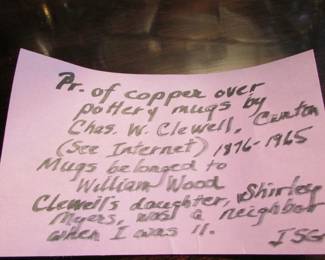 Pr. of copper over
pottery mugs by
Chas. W. Clewell, Canton
(See Internet) 1876-1965
Mugs belonged to
William Wood
Clewell's daughter, Shirley
Myers, was a neighbor
when I was 11.
JSG